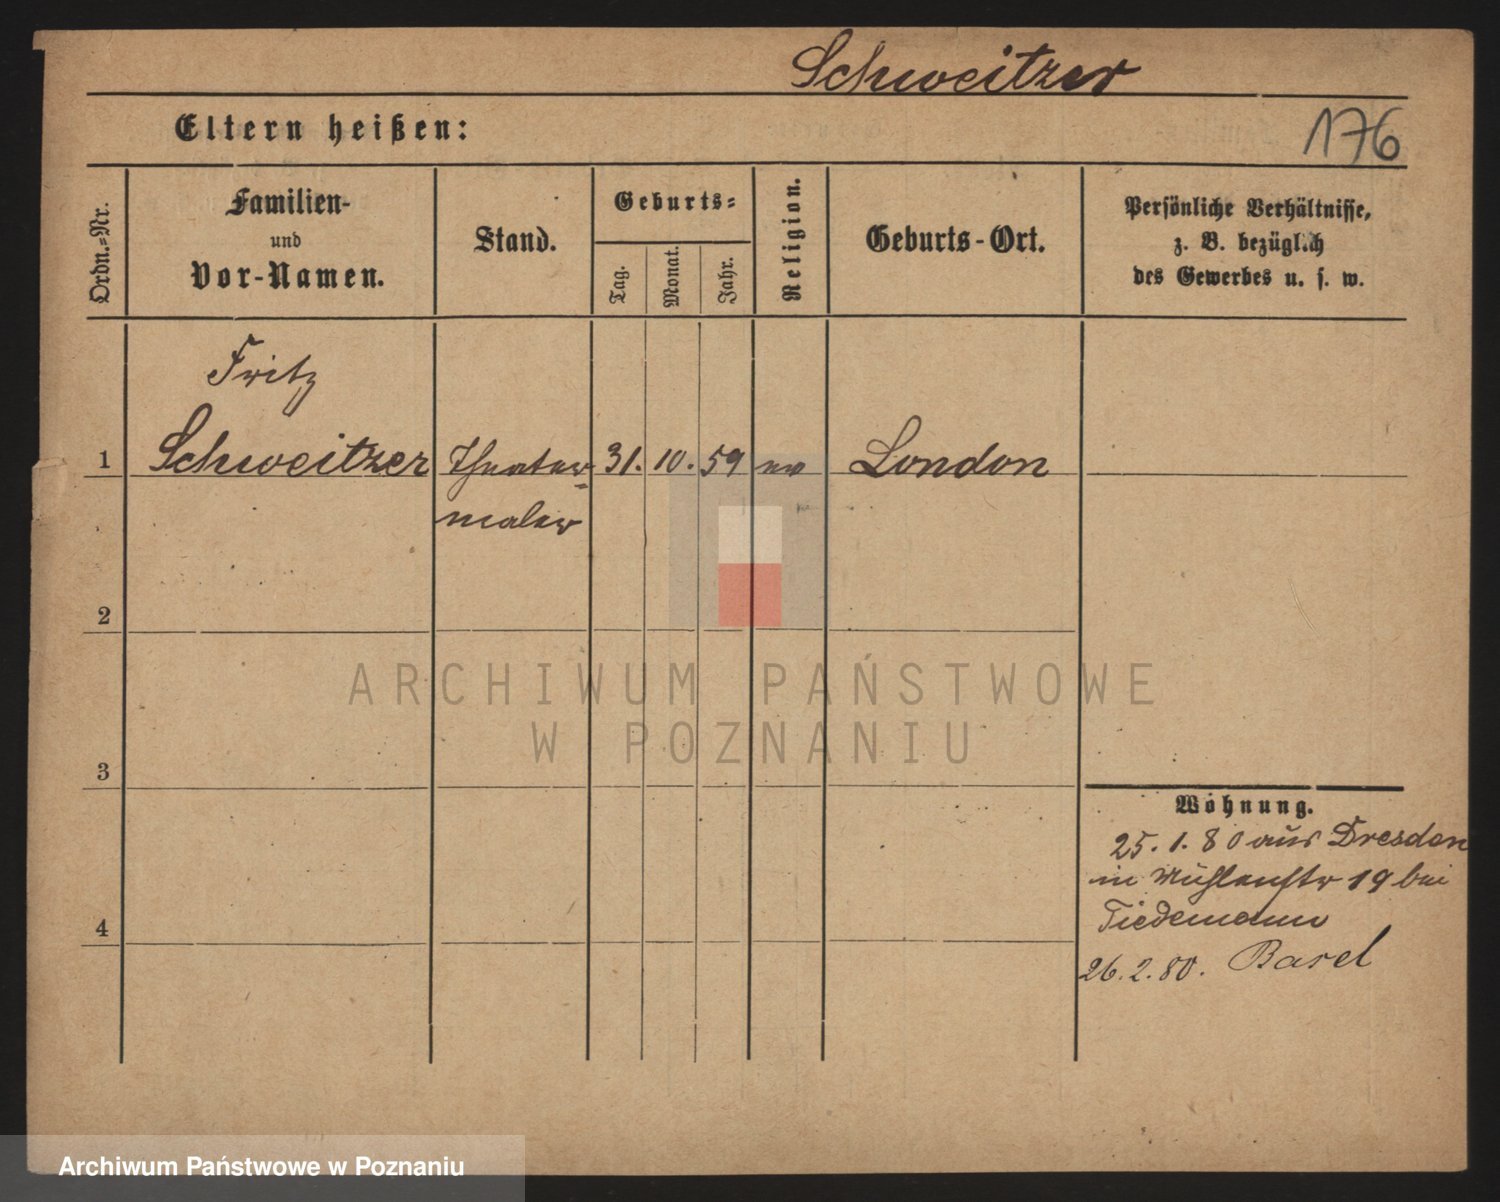 Schweitzer
Eltern heißen:
176
Ordn.=Nr.
Familien-
und
Vor-Namen.
Stand.
Geburts=
Tag.
Monat.
Jahr.
Religion.
Geburts-Ort.
Persönliche Verhältnisse,
z. B. bezüglich
des Gewerbes u. s. w.
Fritz
1 Schweitzer Theater= 31. 10. 59 ev London
maler
2
ARCHIWUM PAŃSTWOWE
W POZNANIU
3
Wohnung.
25. 1. 80 aus Dresden
in Mühlenstr 19 bei
Tiedemann
4
26. 2. 80. Basel
Archiwum Państwowe w Poznaniu